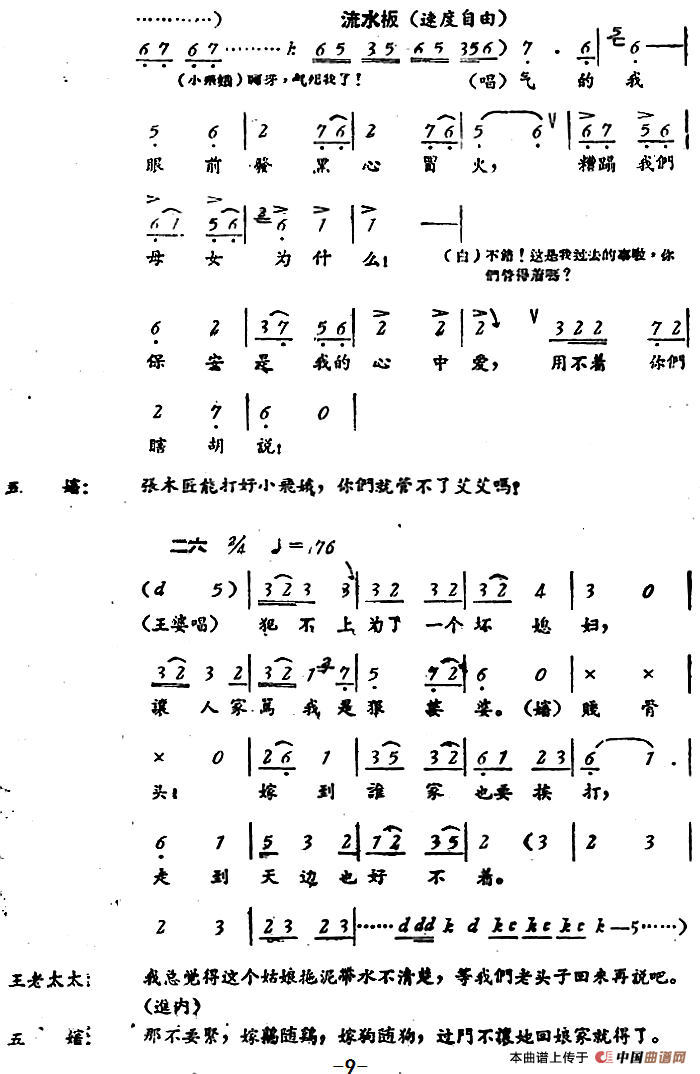 …………） 流水板（速度自由）
6 7 6 7 ……… k 6 5 3 5 6 5 3 5 6） 7 · 6 | 6 —— |
（小飛娥）啊呀，气死我了！ （唱）气 的 我
5 6 | 2 7 6 | 2 7 6 | 5 6 V | 6 7 5 6 |
眼 前 發 黑 心 冒 火， 糟蹋 我們
6 1 5 6 | 2 6 1 | 1 —— |
母 女 为 什 么！ （白）不錯！这是我过去的事啦，你
們管得着嗎？
6 2 | 3 7 5 6 | 2 2 | 2 V 3 2 2 7 2 |
保 安 是 我的 心 中 爱， 用不着 你們
2 7 | 6 0 |
瞎 胡 說！
五 嬸： 張木匠能打好小飛娥，你們就管不了艾艾嗎？
二六 2/4 ♩= 176
（d 5）| 3 2 3 3 | 3 2 3 2 | 3 2 4 | 3 0 |
（王婆唱） 犯 不 上 为了 一个 坏 媳 妇，
3 2 3 2 | 3 2 1 7 | 5 7 2 | 6 0 | × × |
讓 人 家 罵 我 是 狠 婆 婆。（嬸）賤 骨
× 0 | 2 6 1 | 3 5 3 2 | 6 1 2 3 | 6 1 · |
头！ 嫁 到 誰 家 也要 挨 打，
6 1 | 5 3 2 | 1 2 3 5 | 2 （3 | 2 3 |
走 到 天 边 也 好 不 着。
2 3 | 2 3 2 3 |…… d ddd k d kc kc kc k —5……）
王老太太： 我总觉得这个姑娘拖泥帶水不清楚，等我們老头子回来再説吧。
（進内）
五 嬸： 那不要緊，嫁鷄随鷄，嫁狗随狗，过門不讓她回娘家就得了。
本曲谱上传于 中国曲谱网
-9-